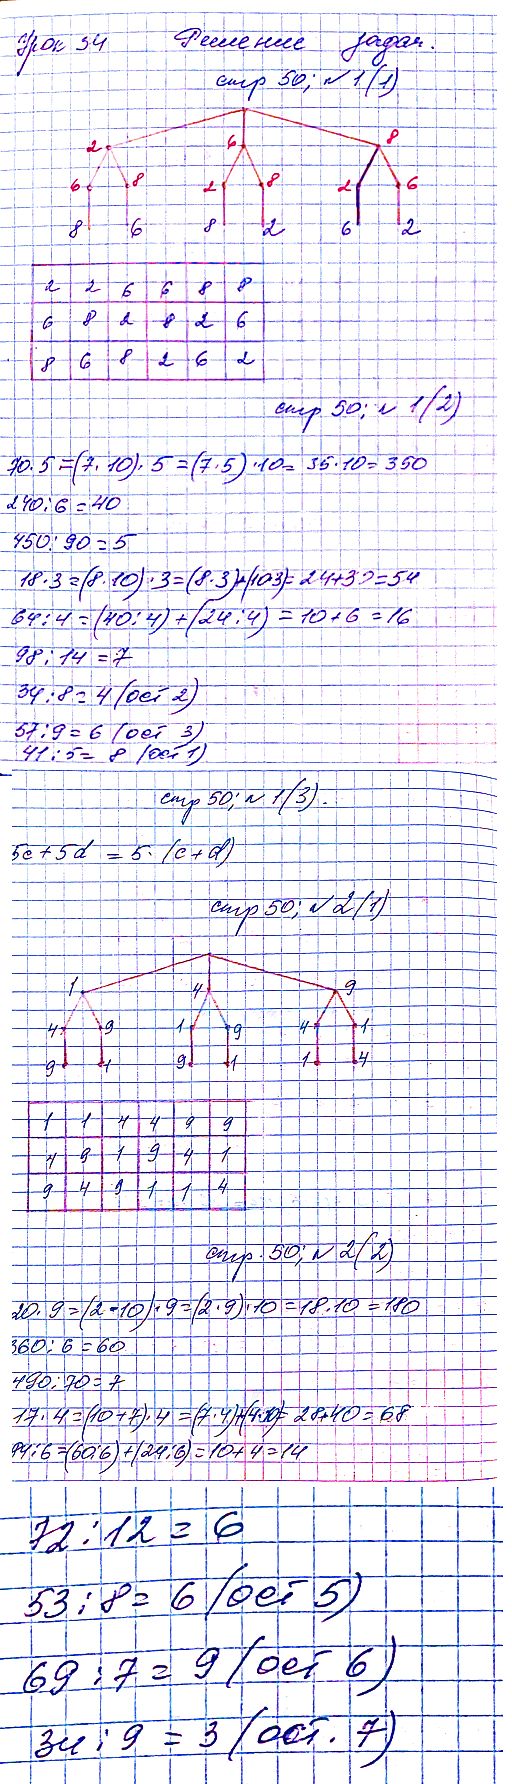 Урок 34 Решение задач.
стр 50; №1(1)
2 6 8
6 8 2 8 2 6
8 6 8 2 6 2
2 2 6 6 8 8
6 8 2 8 2 6
8 6 8 2 6 2
стр 50; №1(2)
70·5=(7·10)·5=(7·5)·10=35·10=350
240:6=40
450:90=5
18·3=(8·10)·3=(8·3)+(10·3)=24+30=54
64:4=(40:4)+(24:4)=10+6=16
98:14=7
34:8=4(ост 2)
57:9=6(ост 3)
41:5=8(ост 1)
стр 50; №1(3).
5c+5d=5·(c+d)
стр 50; №2(1)
1 4 9
4 9 1 9 4 1
9 4 9 1 1 4
1 1 4 4 9 9
4 9 1 9 4 1
9 4 9 1 1 4
стр. 50; №2(2)
20·9=(2·10)·9=(2·9)·10=18·10=180
360:6=60
490:70=7
17·4=(10+7)·4=(7·4)+(4·10)=28+40=68
84:6=(60:6)+(24:6)=10+4=14
72:12=6
53:8=6(ост 5)
69:7=9(ост 6)
34:9=3(ост. 7)